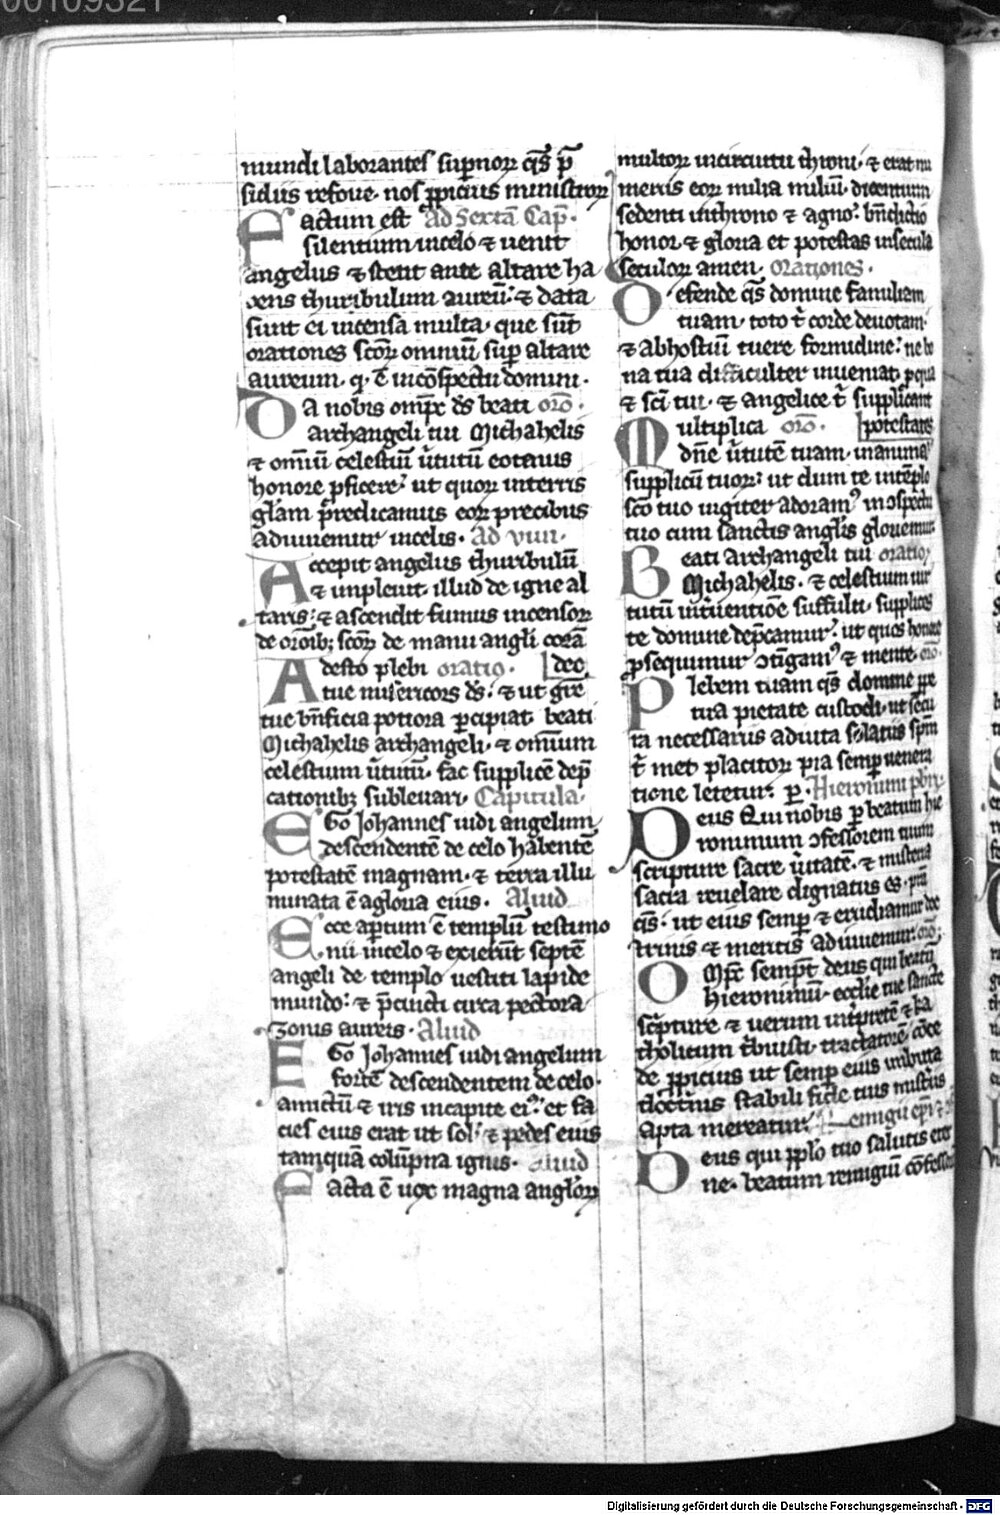 00109321
mundi laborantes supnoꝝ q̄s p̄
sidiis refoue. nos ꝓpicius ministroꝝ
Factum est Ad Sextā Cap̄.
silentium incelo ⁊ uenit
angelus ⁊ stetit ante altare ha
bens thuribulum aureū: ⁊ data
sunt ei incensa multa. que sūt
orationes scōꝝ omniū sup altare
aureum. q. ē incōspectu domini.
Da nobis omp̄c d̄s beati orō.
archangeli tui Michahelis
⁊ om̄iū celestiū ūtutū eotenus
honore ꝓficere: ut quoꝝ interris
gl̄am p̄redicamus eoꝝ precibus
adiuuemur incelis. Ad viiii.
Accepit angelus thuribulū
⁊ inpleuit. illud de igne al
taris: ⁊ ascendit fumus incensoꝝ
de orōib; scōꝝ de manu angli corā
Adesto plebi oratio. deo
tue misericors d̄s: ⁊ ut grē
tue bn̄ficia potiora ꝑcipiat. beati
Michahelis archangeli. ⁊ omīum
celestium ūtutū. fac supplicē dep̄
cationib; subleuari. Capitula.
EGo Johannes uidi angelum
descendentē de celo habentē
potestatē magnam. ⁊ terra illu
minata ē agloria eius. Aliud
Ecce aꝑtum ē templū testimo
nii incelo ⁊ exierūt septē
angeli de templo uestiti lapide
mundo: ⁊ p̄cincti circa pectora
zonis aureis. Aliud
EGo Johannes uidi angelum
fortē descendentem de celo.
amictū ⁊ iris incapite eiꝰ. et fa
cies eius erat ut sol: ⁊ pedes eius
tamquā colūpna ignis. Aliud
Facta ē uox magna angloꝝ
multoꝝ incircuitu throni. ⁊ erat nu
merus eoꝝ milia miliū. dicentium
sedenti inthrono ⁊ agno: bn̄dictio
honor ⁊ gloria et potestas insecula
seculoꝝ amen. Orationes.
Defende q̄s domine familiam
tuam. toto t̄ corde deuotam.
⁊ abhostiū tuere formidine: ne bo
na tua difficulter inueniat. ꝓ qua
⁊ sc̄i tui. ⁊ angelice t̄ supplicant
Multiplica orō. potestates
dn̄e ūtutē tuam. inanima
supplicū tuoꝝ: ut dum te intēplo
scō tuo iugiter adoramꝰ inɔspectu
tuo cum sanctis angl̄is gloriemur.
Beati Archangeli tui oratio
Michahelis. ⁊ celestium uir
tutū int̄uentiōe suffulti. supplices
te domine dep̄camur: ut quos honore
ꝓsequimur ɔtīgamꝰ ⁊ mente. orō.
Plebem tuam q̄s domine ꝑpe
tua pietate custodi. ut secu
ra necessariis adiuta solatiis spm̄
t̄ met placitoꝝ pia semꝑ uenera
tione letetur. ꝑ. Hieronimi pbri.
Deus Qui nobis ꝑ beatum hie
ronimum ɔfessorem tuum
scripture sacre ūitatē. ⁊ misteria
sacra reuelare dignatus es. p̄ta
q̄s. ut eius semꝑ ⁊ erudiamur doc
trinis ⁊ mentis adiuuemur. orō;
Omp̄s sempt̄ deus qui beatū
hieronimū. eccl̄ie tue sancte
sc̄pture ⁊ uerum int̄pretē ⁊ ka
tholicum t̄buisti tractatorē. cōce
de ꝓpicius ut semꝑ eius inbuta
doctīnis stabili fide tuis mist̄iis
apta mereatur. Remigii ep̄i
Deus qui ꝓplo tuo salutis eter
ne. beatum remigiū cōfessorē
Digitalisierung gefördert durch die Deutsche Forschungsgemeinschaft - DFG